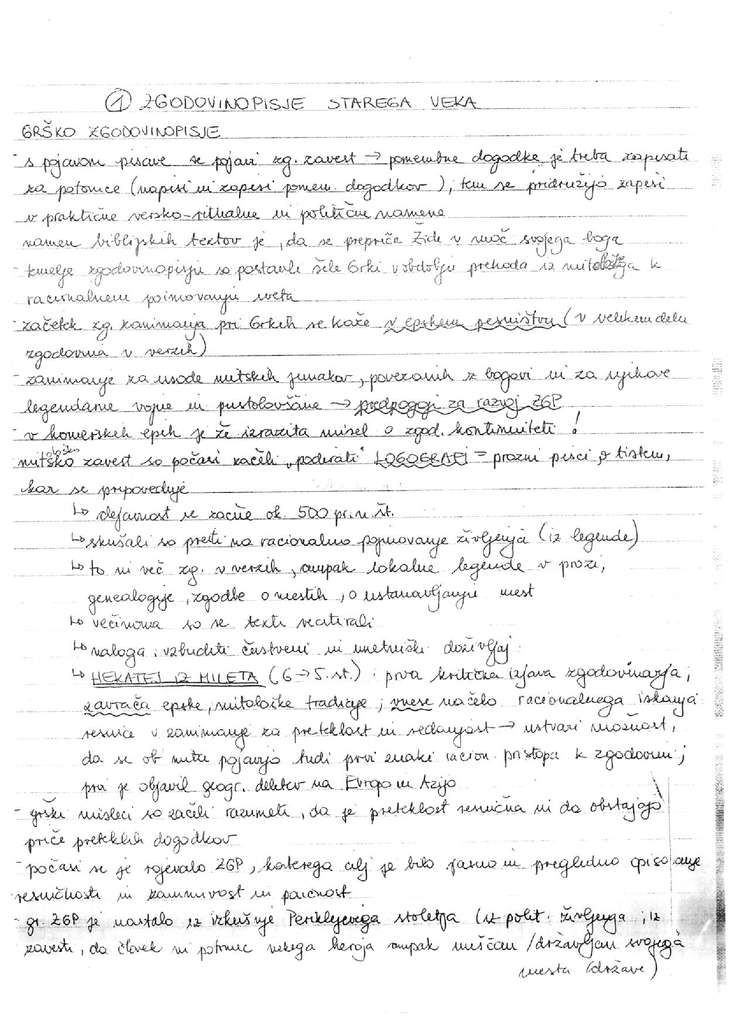 ① ZGODOVINOPISJE STAREGA VEKA
GRŠKO ZGODOVINOPISJE
- s pojavom pisave se pojavi zg. zavest → pomembne dogodke je treba zapisati
za potomce (napisi in zapisi pomem. dogodkov), tem se pridružijo zapisi
v praktične versko-ritualne in politične namene
namen biblijskih textov je, da se prepriča Žide v moč svojega boga
- temelje zgodovinopisju so postavili šele Grki v obdobju prehoda iz mitološkega k
racionalnem pojmovanju sveta
- začetek zg. zanimanja pri Grkih se kaže v epskem pesništvu (v velikem delu
zgodovina v verzih)
- zanimanje za usode mitskih junakov, povezanih z bogovi in za njihove
legendarne vojne in pustolovščine → predpogoji za razvoj ZGP
- v homerskih epih je že izrazita misel o zgod. kontinuiteti!
mitološko zavest so počasi začeli "podirati" LOGOGRAFI = prozni pisci, o tistem,
kar se pripoveduje
↳ dejavnost se začne ok. 500 pr.n.št.
↳ skušali so preiti na racionalno pojmovanje življenja (iz legende)
↳ to ni več zg. v verzih, ampak lokalne legende v prozi,
genealogije, zgodbe o mestih, o ustanavljanju mest
↳ večinoma so se texti recitirali
↳ naloga: vzbuditi čustveni in umetniški doživljaj
↳ HEKATEJ IZ MILETA (6→5. st.): prva kritična izjava zgodovinarja;
zavrača epske, mitološke tradicije; vnese načelo racionalnega iskanja
resnice v zanimanje za preteklost in sedanjost → ustvari možnost,
da se ob mitu pojavijo tudi prvi znaki racion. pristopa k zgodovini;
prvi je objavil geogr. delitev na Evropo in Azijo
- grški misleci so začeli razumeti, da je preteklost resnična in da obstajajo
priče preteklih dogodkov
- počasi se je rojevalo ZGP, katerega cilj je bilo jasno in pregledno opisovanje
resničnosti in zanimivost in poučnost
- gr. ZGP je nastalo iz izkušnje Periklejevega stoletja (iz polit. življenja, iz
zavesti, da človek ni potomec nekega heroja ampak meščan/državljan svojega
mesta (države)